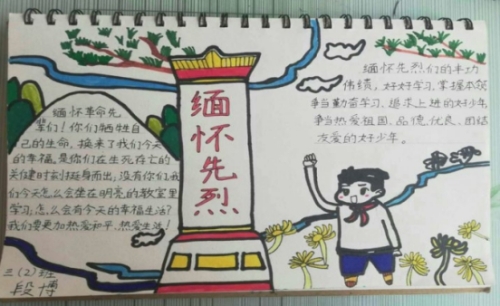 缅怀先烈
缅怀革命先
辈们！你们牺牲自
己的生命，换来了我们今天
的幸福，是你们在生死存亡的
关键时刻挺身而出，没有你们，我
们今天怎么会坐在明亮的教室里
学习，怎么会有今天的幸福生活？
我们要更加热爱和平，热爱生活！
三（2）班
段博
缅怀先烈们的丰功
伟绩，好好学习，掌握本领
争当勤奋学习、追求上进的好少年。
争当热爱祖国、品德优良、团结
友爱的好少年。